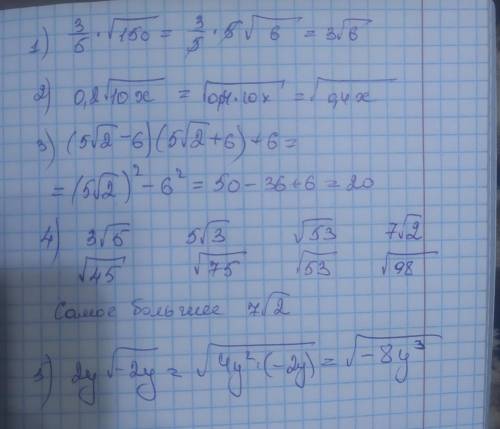 1) 3/5 · √150 = 3/5 · 5√6 = 3√6
2) 0,2√10x = √0,04·10x = √0,4x
3) (5√2 - 6)(5√2 + 6) + 6 =
= (5√2)² - 6² = 50 - 36 + 6 = 20
4) 3√5 5√3 √53 7√2
√45 √75 √53 √98
Самое большее 7√2
5) 2y√-2y = √4y²·(-2y) = √-8y³